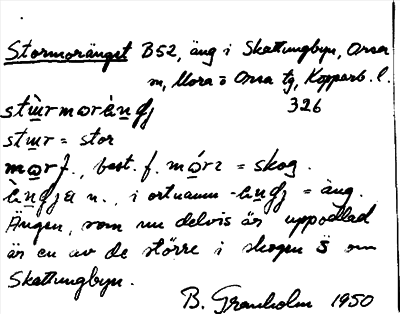 Stormoränget B52, äng i Skattungbyn, Orsa
m, Mora o Orsa tg, Kopparb. l.
326
stɯ̲rmoràŋgj
stɯ̲r = stor
mo̲r f., best. f. mó̲rɛ = skog.
n., i ortnamn = äng.
Ängen, som nu delvis är uppodlad
är en av de större i skogen S om
Skattungbyn.
B. Granholm 1950